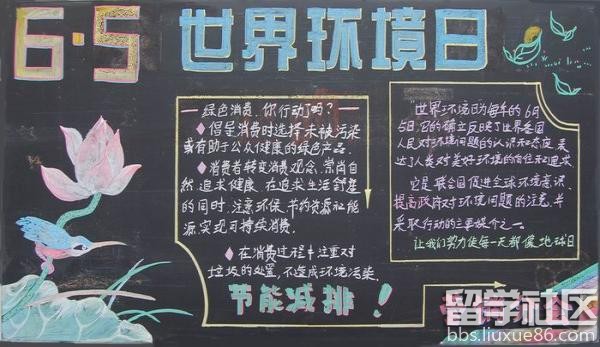 6·5 世界环境日
绿色消费，你行动了吗？
◆倡呈消费时选择未被污染
或有助于公众健康的绿色产品
◆消费者转变消费观念，崇尚自
然追求健康，在追求生活舒适
的同时，注意环保，节约资源和能
源，实现可持续消费。
◆在消费过程中注重对
垃圾的处置，不造成环境污染.
节能减排！
"世界环境日为每年的6月
5日，它的确立反映了世界各国
人民对环境问题的认识和态度，表
达了人类对美好环境的向往和追求
它是联合国促进全球环境意识、
提高政府对环境问题的注意，并
采取行动的主要媒介之一.
让我们努力使每一天都像地球日
留学社区
bbs.liuxue86.com